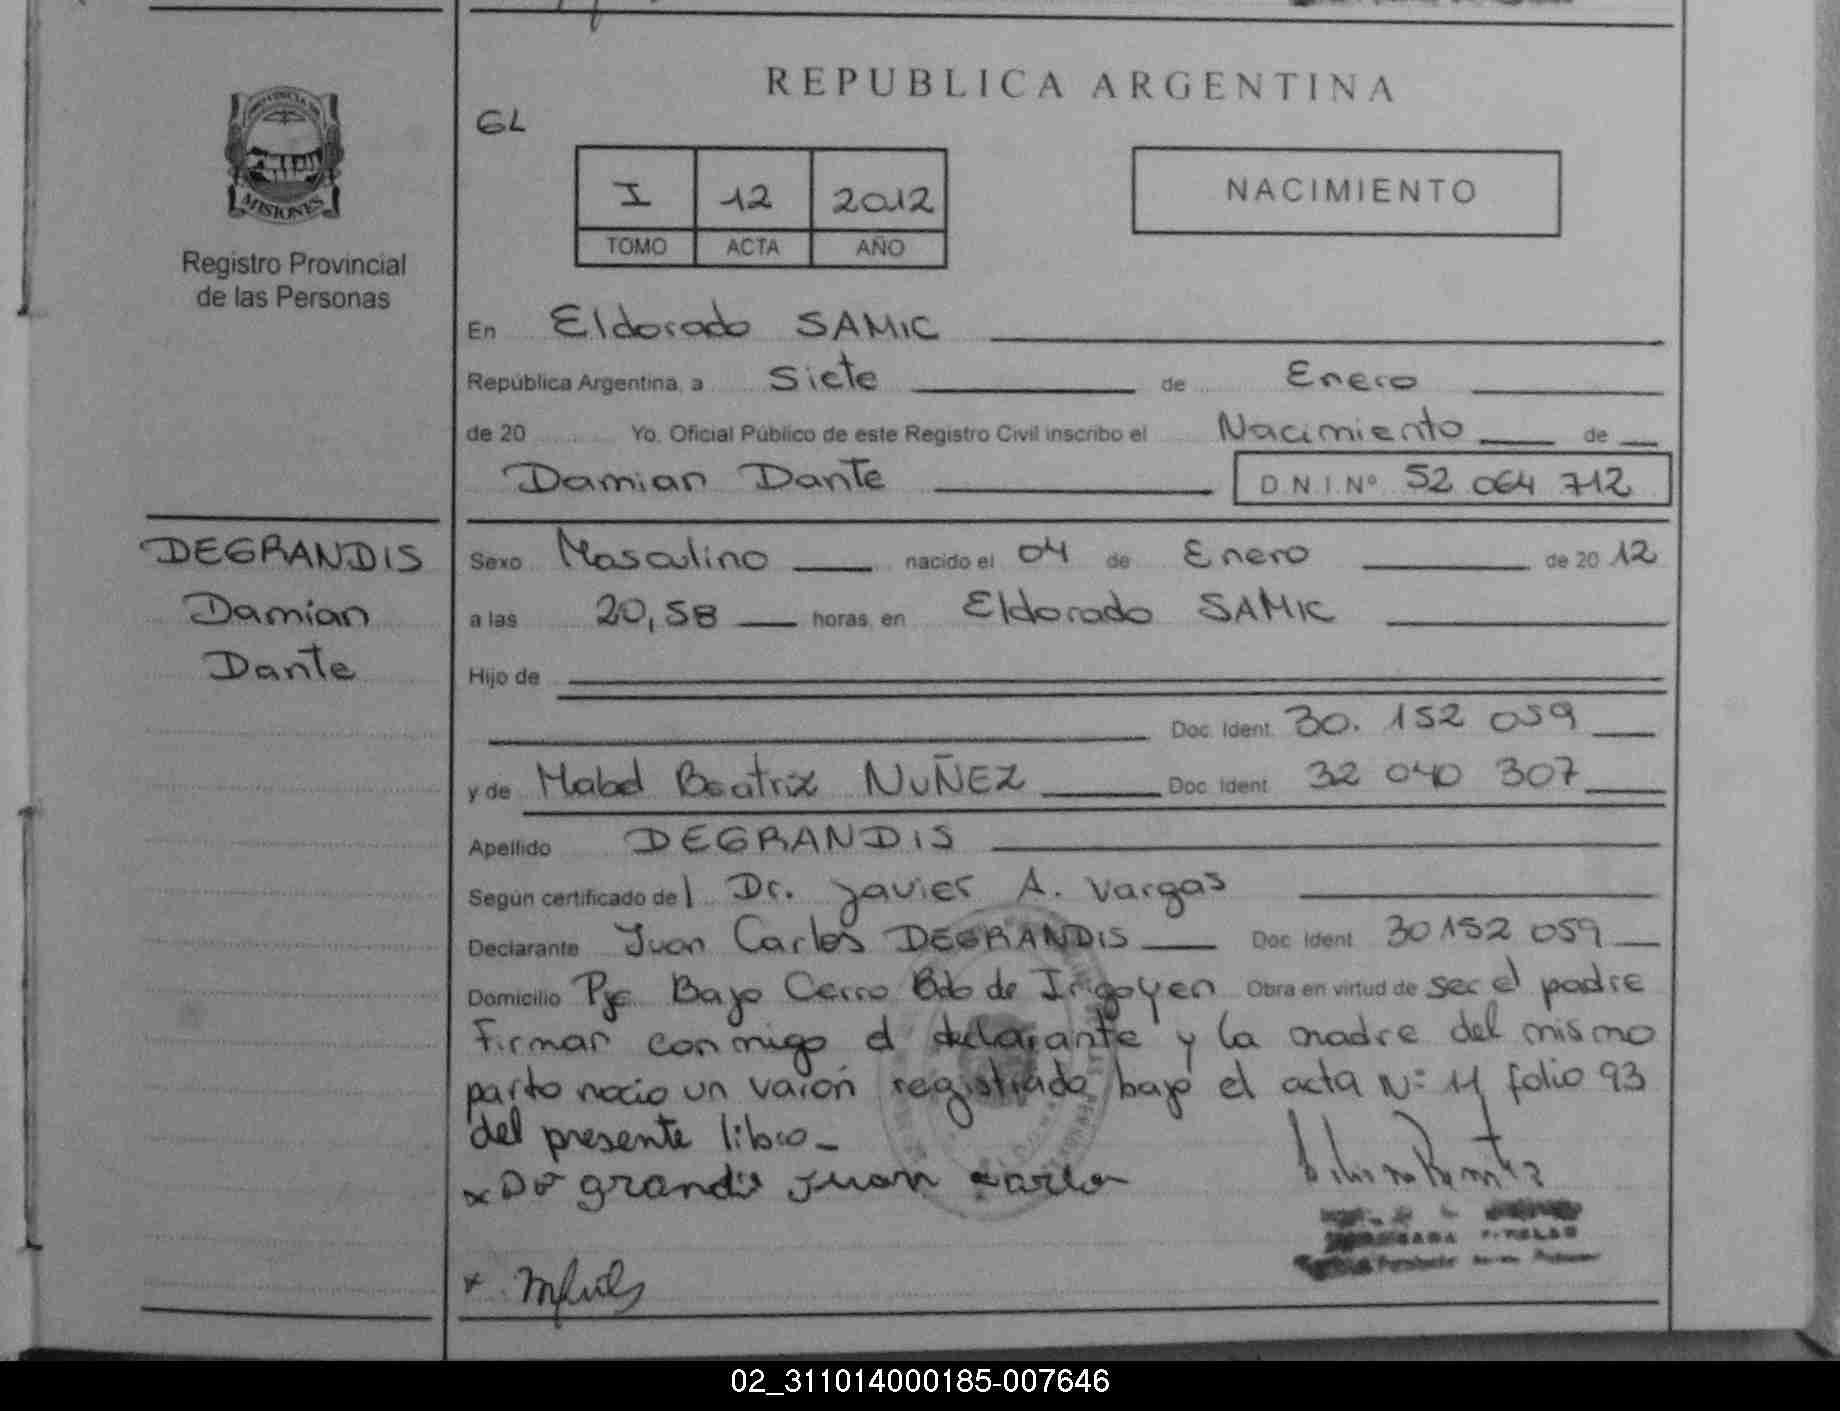 REPUBLICA ARGENTINA
GL
PROVINCIA DE
MISIONES
Registro Provincial
de las Personas
I 12 2012
TOMO ACTA AÑO
NACIMIENTO
En Eldorado SAMIC
República Argentina, a Siete de Enero
de 20 Yo, Oficial Público de este Registro Civil inscribo el Nacimiento de
Damian Dante D.N.I.Nº 52 064 712
DEGRANDIS
Damian
Dante
Sexo Masculino nacido el 04 de Enero de 20 12
a las 20,58 horas, en Eldorado SAMIC
Hijo de
Doc. Ident. 30. 152 059
y de Mabel Beatriz NUÑEZ Doc. Ident. 32 040 307
Apellido DEGRANDIS
Según certificado del Dr. Javier A. Vargas
Declarante Juan Carlos DEGRANDIS Doc. Ident. 30152 059
Domicilio Pje. Bajo Cerro Bdo de Irigoyen Obra en virtud de ser el padre
Firman conmigo el declarante y la madre del mismo
parto nacio un varón registrado bajo el acta Nº 11 folio 93
del presente libro_
x De grandis Juan Carlo
x
02_311014000185-007646